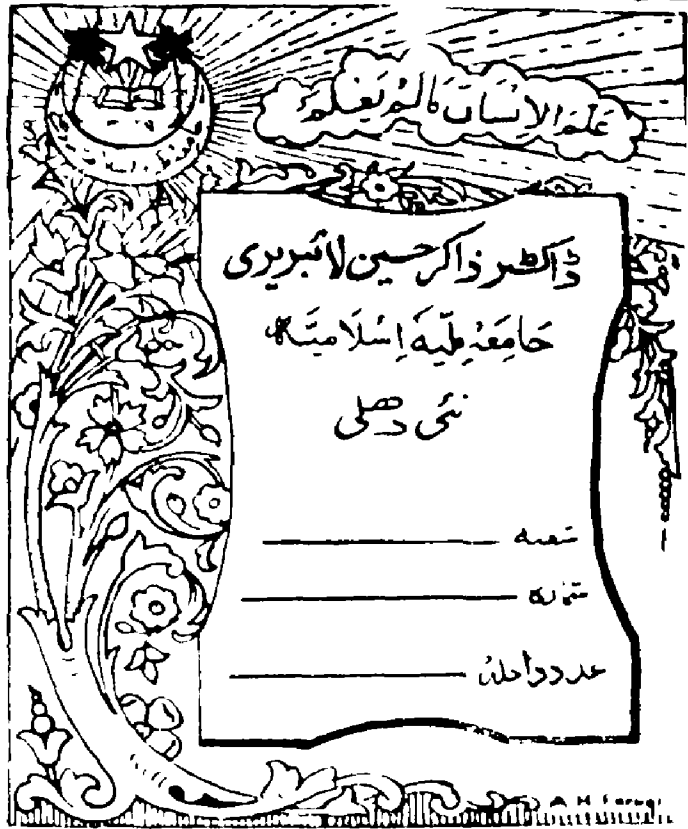 عَلَّمَ الْاِنْسَانَ مَالَمْ يَعْلَمْ
ڈاکٹر ذاکر حسین لائبریری
جَامِعَہ مِلّیَہ اِسْلَامِیَہ
نئی دھلی
شعبہ
شمارہ
عدد داخلہ
A H Faruqi